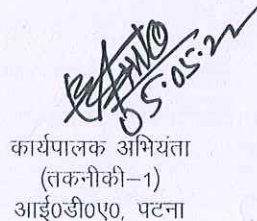 05.05.22
कार्यपालक अभियंता
(तकनीकी-1)
आई0डी0ए0, पटना